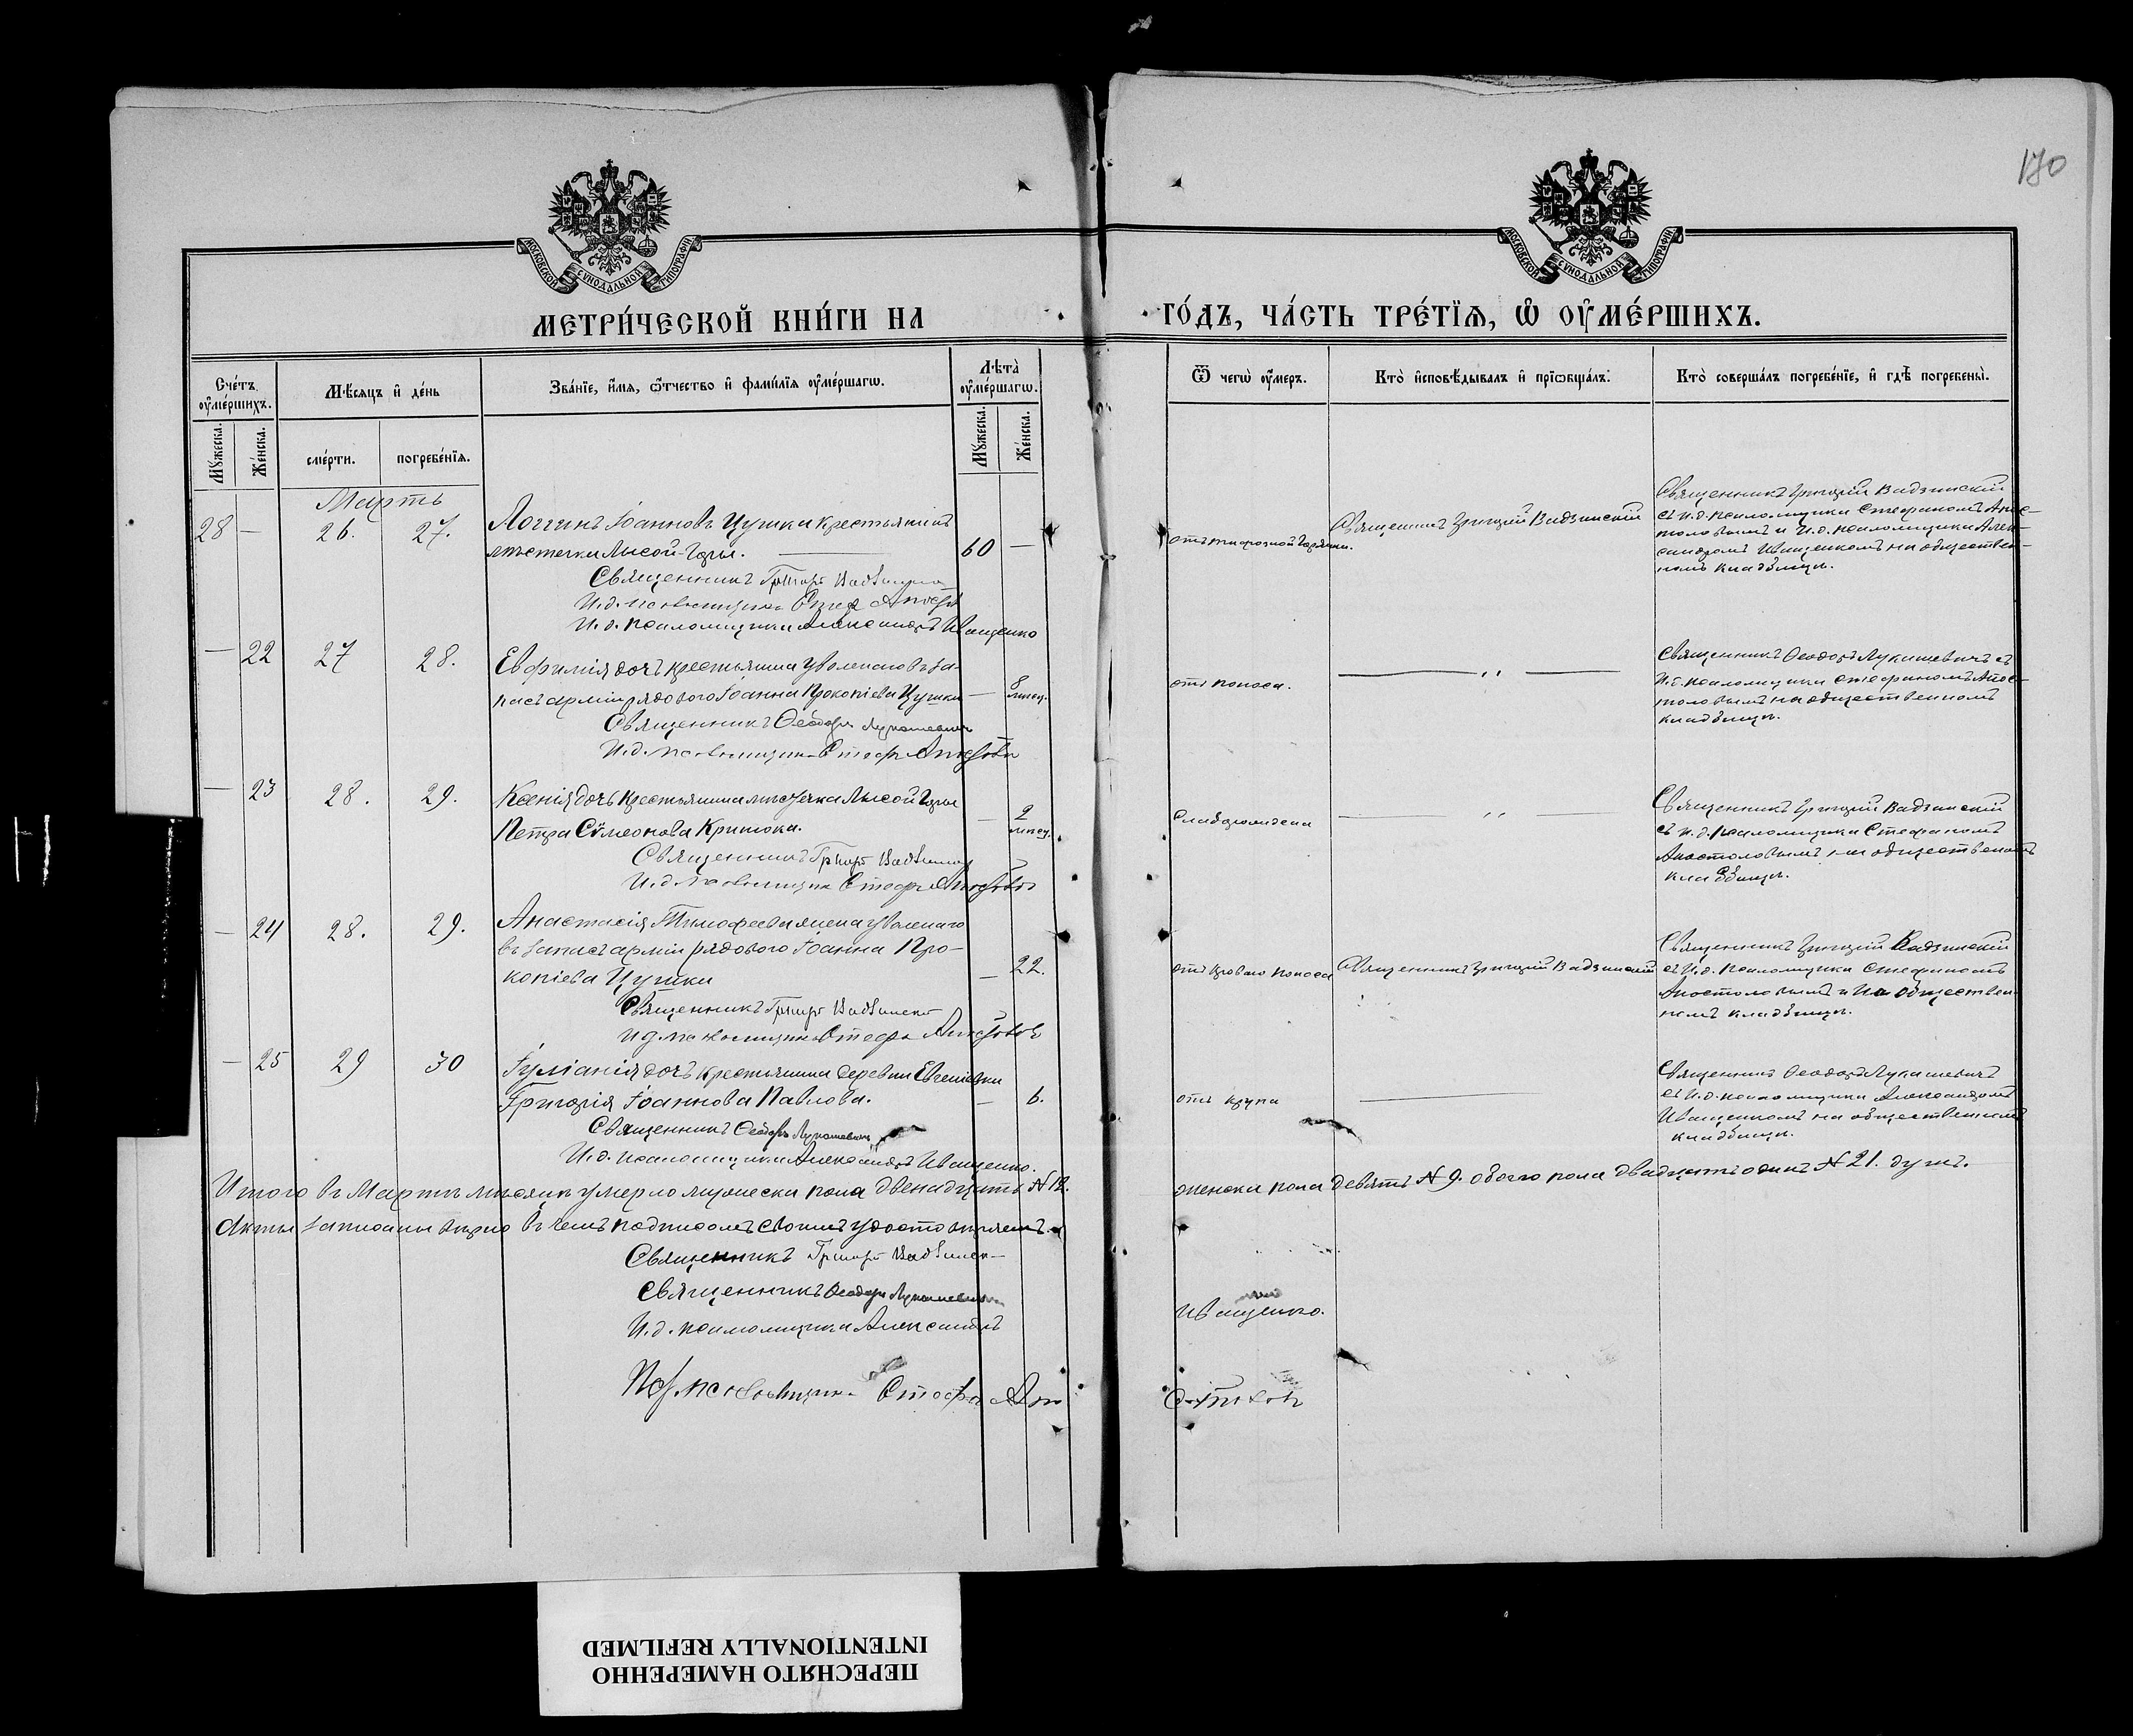 170
МОСКОВСКОЙ СѴНОДАЛЬНОЙ ТИПОГРАФІИ
МОСКОВСКОЙ СѴНОДАЛЬНОЙ ТИПОГРАФІИ
МЕТРИ́ЧЕСКОЙ КНИ́ГИ НА
ГО́ДЪ, ЧА́СТЬ ТРЕ́ТЇѦ, Ѡ҆ ОУ҆МЕ́РШИХЪ.
Сче́тъ оу҆ме́ршихъ.
Мꙋ́жеска.
Же́нска.
Мѣ́сѧцъ и҆ де́нь
сме́рти.
погребе́нїѧ.
Зва́нїе, и҆́мѧ, ѻ҆́тчество и҆ фами́лїѧ оу҆ме́ршагѡ.
Лѣ́та оу҆ме́ршагѡ.
Мꙋ́жеска.
Же́нска.
Ѿ чегѡ̀ оу҆́меръ.
Кто̀ и҆сповѣ́дывалъ и҆ прїѡбща́лъ.
Кто̀ соверша́лъ погребе́нїе, и҆ гдѣ̀ погребены̀.
Мартъ
28 — 26. 27.
Логгинъ Іоанновъ Цушка крестьянинъ
мѣстечка Лысой-Горы. 60 —
Священникъ Григорій Вадзинскій
И. д. псаломщика Стеф Апостолов
И. д. псаломщика Александръ Иващенко
отъ тифозной горячки.
Священникъ Григорій Вадзинскій
Священникъ Григорій Вадзинскій
съ и. д. псаломщика Стефаномъ Апос-
толовымъ и И. д. псаломщика Алек-
сандромъ Иващенкомъ на обществен-
номъ кладбищѣ.
— 22 27 28.
Евфимія дочь крестьянина уволенаго въ за-
пасъ арміи рядового Іоанна Прокопіева Цушки — 8 мѣсяц.
Священникъ Ѳеодоръ Лукашевичъ
И. д. псаломщика Стеф Апостолов
отъ поноса.
— „ —
Священникъ Ѳеодоръ Лукашевичъ съ
И. д. псаломщика Стефаномъ Апос-
толовымъ на общественномъ
кладбищѣ.
— 23 28. 29.
Ксенія дочь крестьянина мѣстечка Лысой Горы
Петра Сѵмеонова — 2 мѣсяц.
Священникъ Григорій Вадзинскій
И. д. псаломщика Стеф Апостолов
Слаборожденa
— „ —
Священникъ Григорій Вадзинскій
съ и. д. псаломщика Стефаномъ
Апостоловымъ на общественномъ
кладбищѣ.
— 24 28. 29.
Анастасія Тимофеева жена уволенаго
въ запасъ арміи рядового Іоанна Про-
копіева Цушки — 22.
Священникъ Григорій Вадзинскій
И д псаломщика Стефа Апостоловъ
отъ кроваго поноса
Священникъ Григорій Вадзинскій
Священникъ Григорій Вадзинскій
съ И. д. псаломщика Стефаномъ
Апостоловымъ на обществен
номъ кладбищѣ.
— 25 29 30
Іуліанія дочь крестьянина деревни Евгеніевки
Григорія Іоаннова Павлова. — 6.
Священникъ Ѳеодоръ Лукашевичъ
И. д. псаломщика Александръ Иващенко.
отъ крупа
—
Священникъ Ѳеодоръ Лукашевичъ
съ И. д. псаломщика Александромъ
Иващенкомъ на общественномъ
кладбищѣ.
Итого въ Мартѣ мѣсяцѣ умерло мужеска пола двенадцать № 12.
женска пола девять № 9. обоего пола двадцать одинъ № 21. душъ.
Акты записаны вѣрно въ чемъ подписомъ своимъ удостовѣряемъ.
Священникъ Григорій Вадзинск
Священникъ Ѳеодоръ Лукашевичъ
И. д. псаломщика Александръ Иващенко.
псаломщика Стефа Апостоловъ
ПЕРЕСНЯТО НАМЕРЕННО
INTENTIONALLY REFILMED